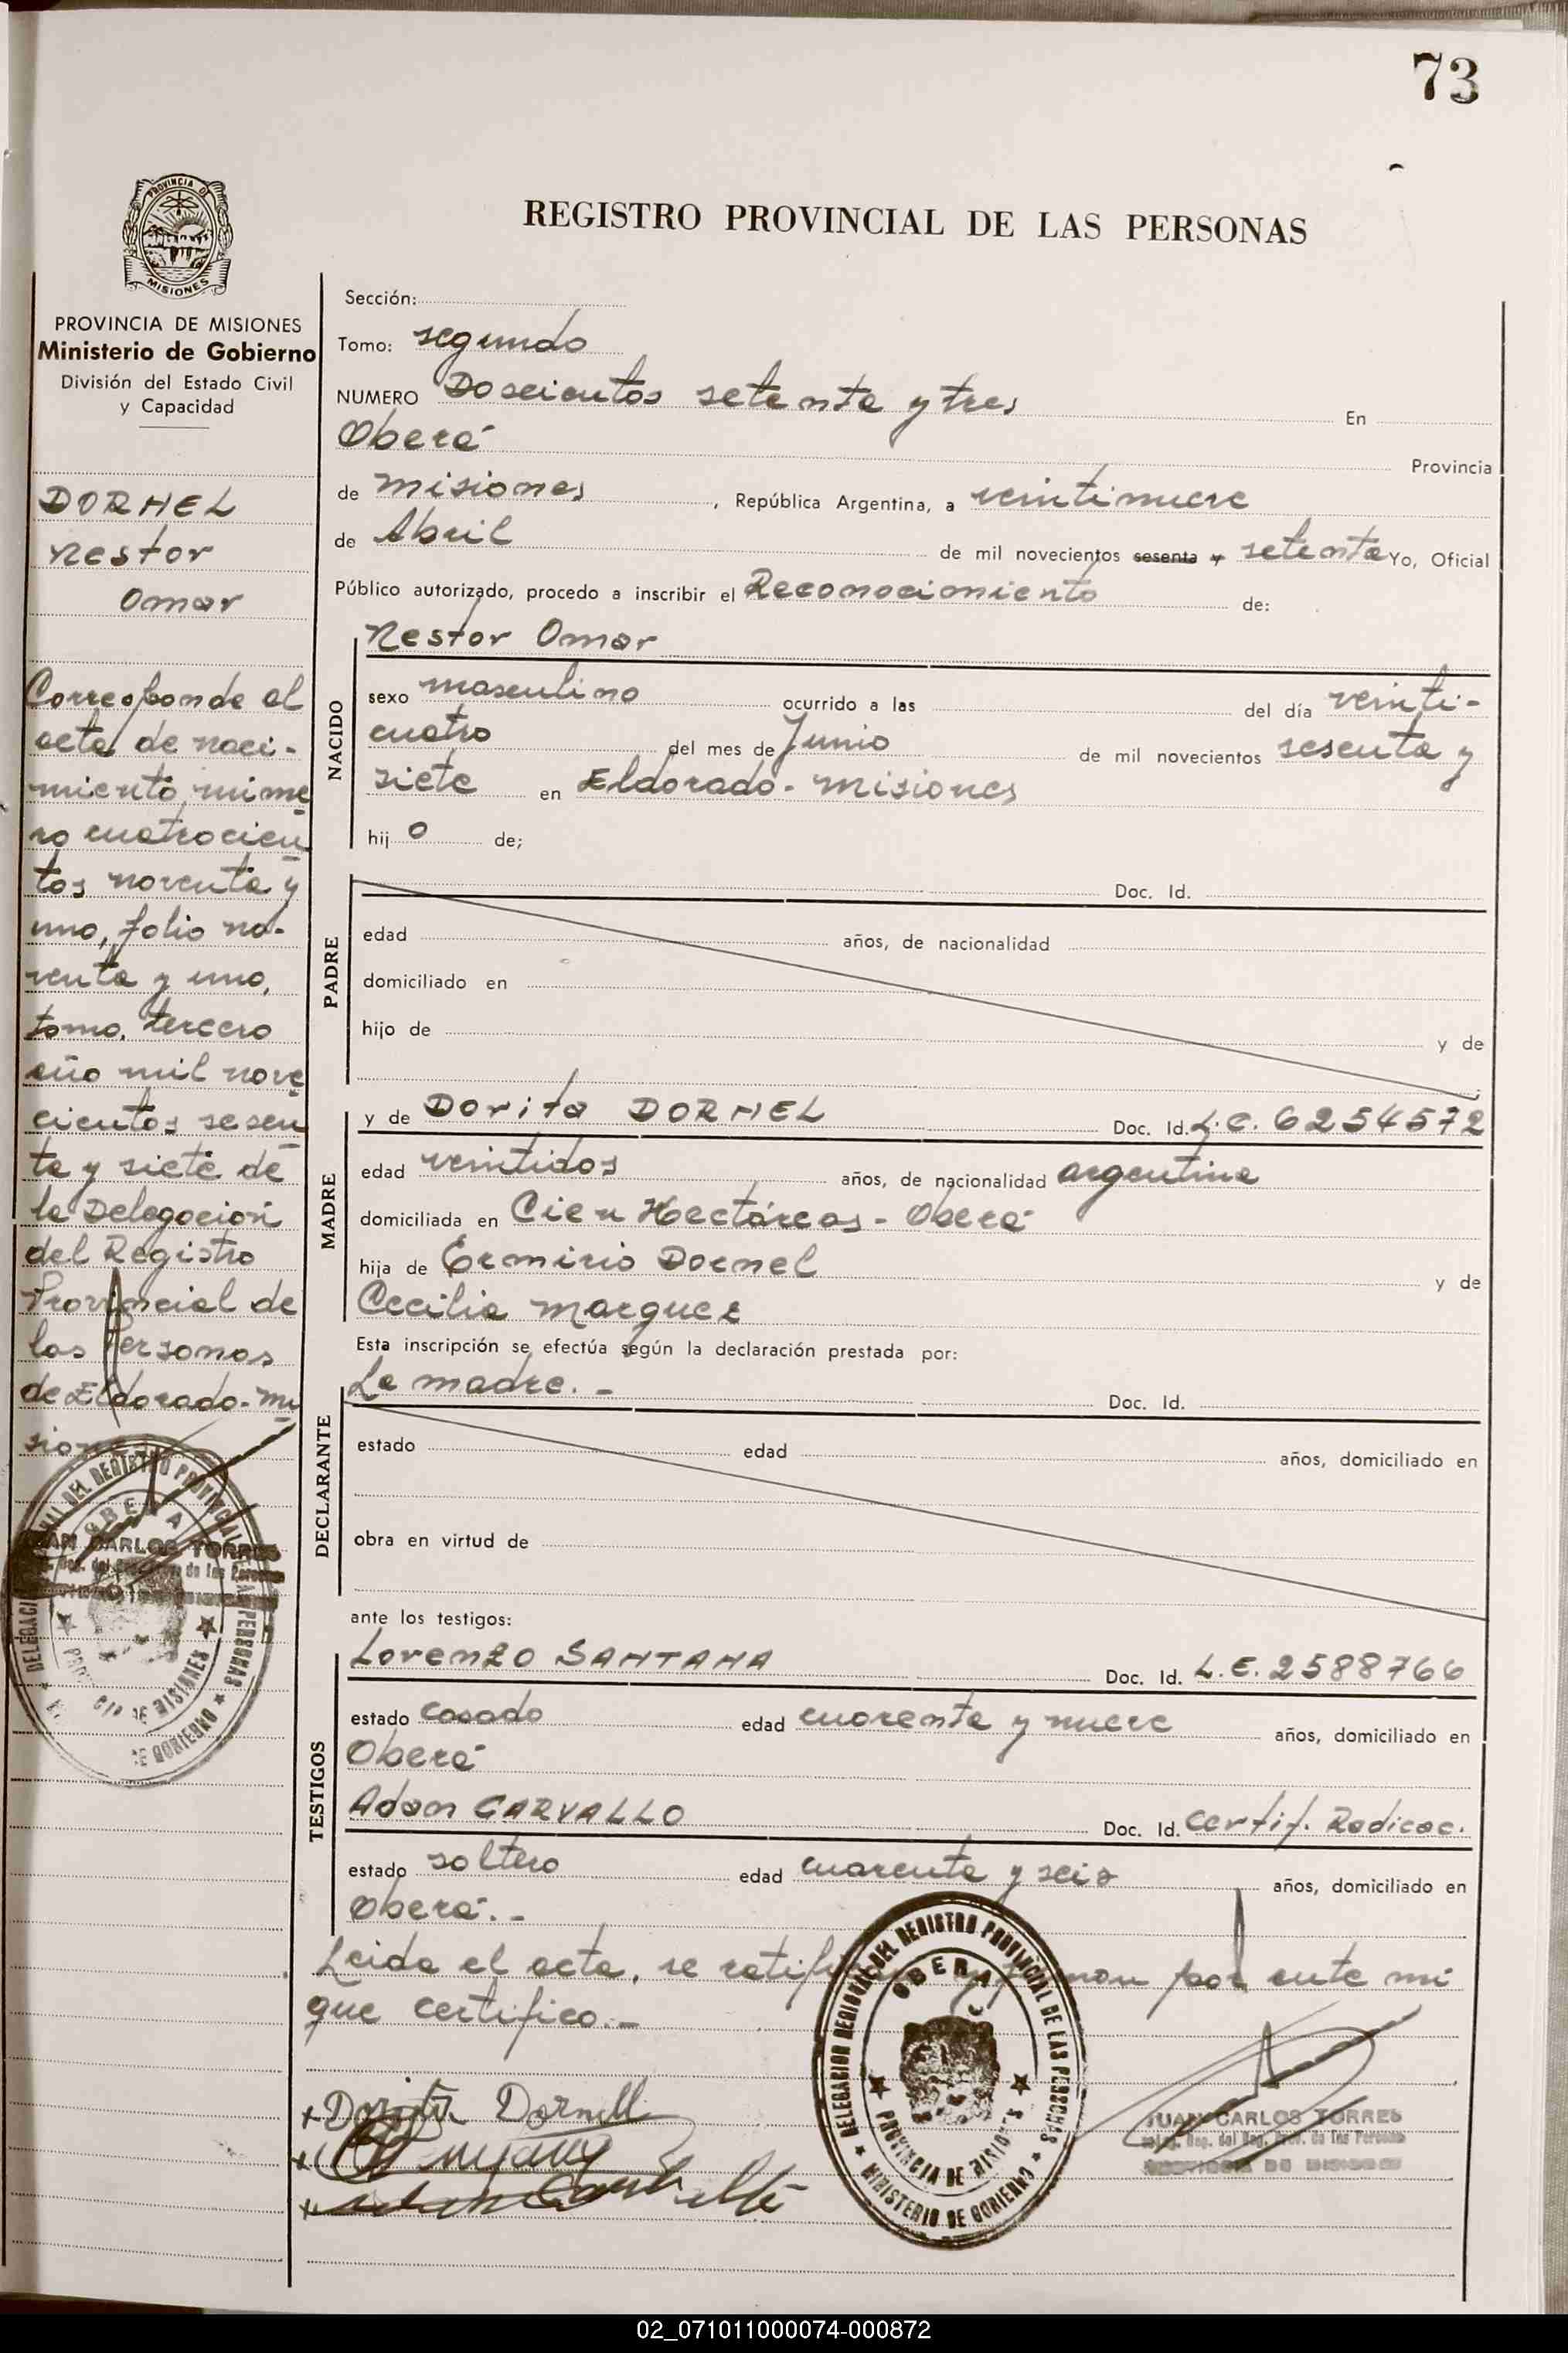 73
REGISTRO PROVINCIAL DE LAS PERSONAS
PROVINCIA DE MISIONES
Ministerio de Gobierno
División del Estado Civil
y Capacidad
DORNEL
Nestor
Omar
Corresponde al
acta de naci-
miento, núme
ro cuatrocien
tos noventa y
uno, folio no-
venta y uno,
tomo, tercero
año mil nove
cientos sesen
ta y siete de
la Delegación
del Registro
Provincial de
las Personas
de Eldorado-Mi
siones
JUAN CARLOS TORRES
Sección:
Tomo: segundo
NUMERO Doscientos setenta y tres En
Oberá Provincia
de Misiones, República Argentina, a veintinueve
de Abril de mil novecientos sesenta y setenta Yo, Oficial
Público autorizado, procedo a inscribir el Reconocimiento de:
NACIDO
Nestor Omar
sexo masculino ocurrido a las del día veinti-
cuatro del mes de Junio de mil novecientos sesenta y
siete en Eldorado-Misiones
hijo de;
PADRE
Doc. Id.
edad años, de nacionalidad
domiciliado en
hijo de y de
MADRE
y de Dorita DORNEL Doc. Id. L.C. 6254572
edad veintidos años, de nacionalidad argentina
domiciliada en Cien Hectáreas - Oberá
hija de Ermirio Dornel y de
Cecilia Marquez
Esta inscripción se efectúa según la declaración prestada por:
DECLARANTE
La madre.- Doc. Id.
estado edad años, domiciliado en
obra en virtud de
ante los testigos:
TESTIGOS
Lorenzo SANTANA Doc. Id. L.E. 2588766
estado casado edad cuarenta y nueve años, domiciliado en
Oberá
Adan CARVALLO Doc. Id. Certif. Radicac.
estado soltero edad cuarenta y seis años, domiciliado en
Oberá.-
Leida el acta, se ratifi por ante mi
que certifico.-
Dorita Dornell
DELEGACION REGIONAL DEL REGISTRO PROVINCIAL DE LAS PERSONAS
OBERA
PROVINCIA DE MISIONES
MINISTERIO DE GOBIERNO
JUAN CARLOS TORRES
02_071011000074-000872